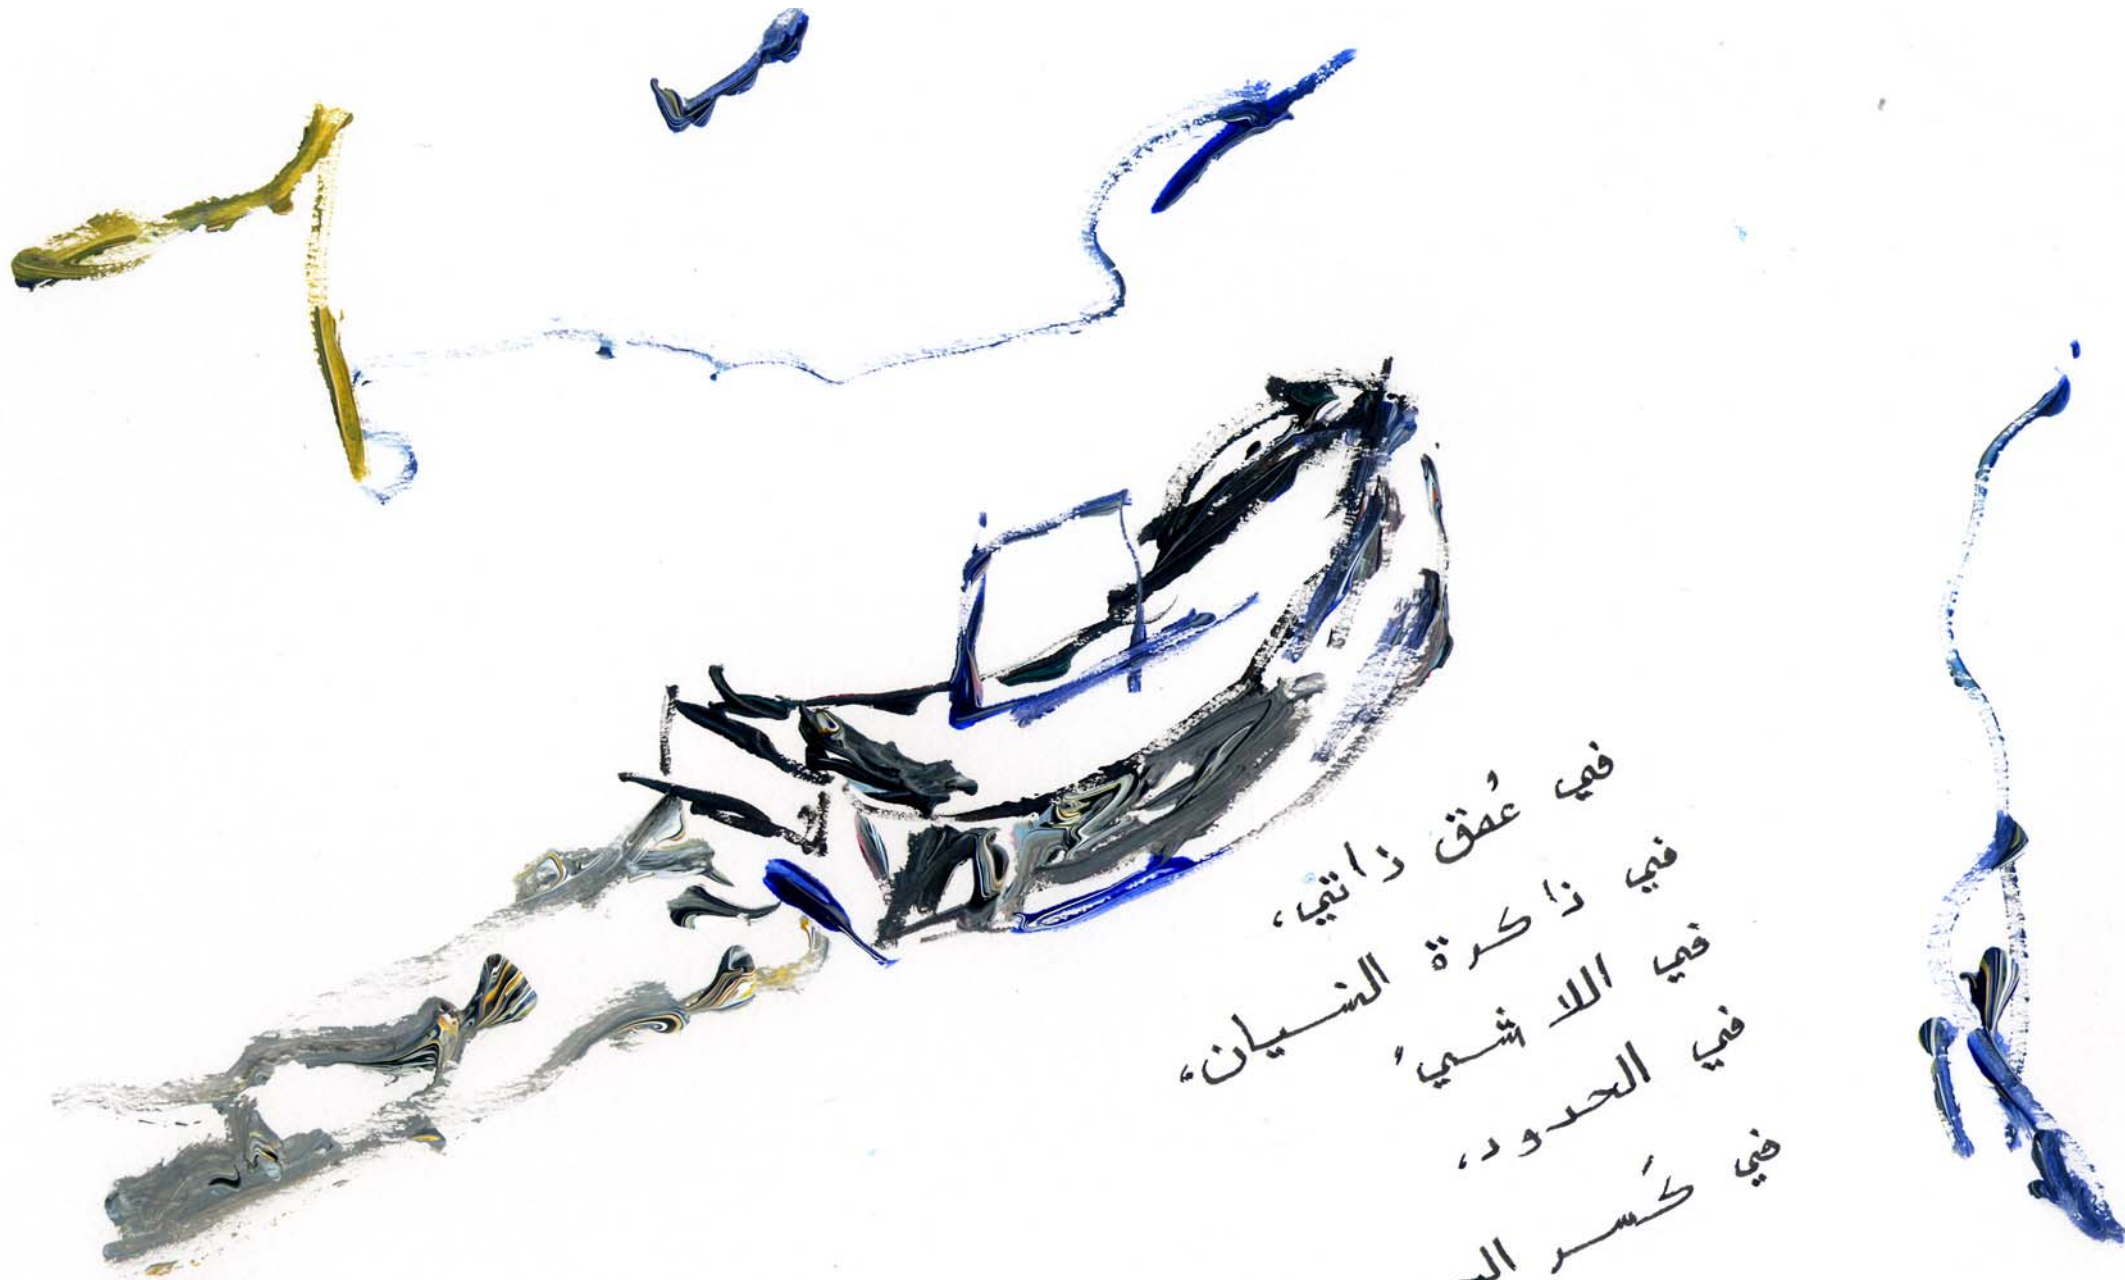 في عُمق ذاتي،
في ذاكرة النسيان،
في اللا شيء
في الحدود،
في كَسر